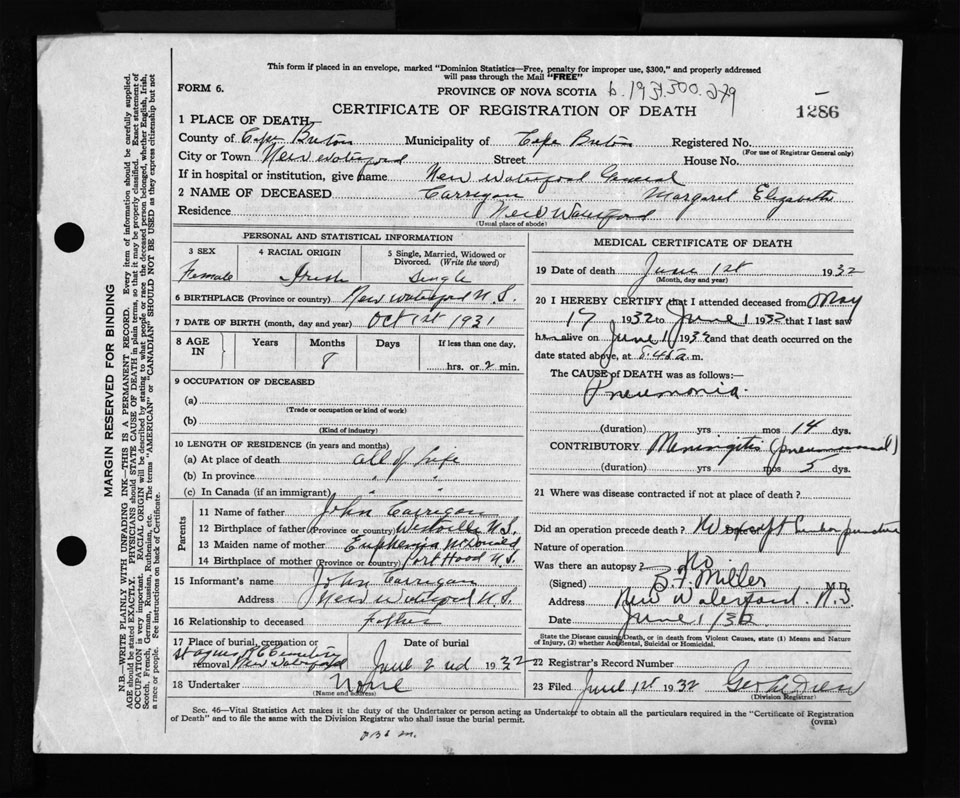 This form if placed in an envelope, marked "Dominion Statistics—Free, penalty for improper use, $300," and properly addressed
will pass through the Mail "FREE"
FORM 6.
PROVINCE OF NOVA SCOTIA
CERTIFICATE OF REGISTRATION OF DEATH
1286
1 PLACE OF DEATH
County of Cape Breton Municipality of Cape Breton Registered No.
(For use of Registrar General only)
City or Town New Waterford Street House No.
If in hospital or institution, give name New Waterford General
2 NAME OF DECEASED Carrigan Margaret Elizabeth
Residence New Waterford
(Usual place of abode)
PERSONAL AND STATISTICAL INFORMATION
3 SEX
Female
4 RACIAL ORIGIN
Irish
5 Single, Married, Widowed or
Divorced. (Write the word)
Single
6 BIRTHPLACE (Province or country) New Waterford N.S.
7 DATE OF BIRTH (month, day and year) Oct 1st 1931
8 AGE
IN
Years
Months
8
Days
If less than one day,
hrs. or 2 min.
9 OCCUPATION OF DECEASED
(a)
(Trade or occupation or kind of work)
(b)
(Kind of industry)
10 LENGTH OF RESIDENCE (in years and months)
(a) At place of death all of life
(b) In province " "
(c) In Canada (if an immigrant) " "
Parents
11 Name of father John Carrigan
12 Birthplace of father (Province or country) Westville N.S.
13 Maiden name of mother Euphemia McDonald
14 Birthplace of mother (Province or country) Port Hood N.S.
15 Informant's name John Carrigan
Address New Waterford N.S.
16 Relationship to deceased father
17 Place of burial, cremation or
removal
St Agnes RC Cemetery
New Waterford
Date of burial
June 2nd 1932
18 Undertaker None
(Name and address)
MEDICAL CERTIFICATE OF DEATH
19 Date of death June 1st 1932
(Month, day and year)
20 I HEREBY CERTIFY that I attended deceased from May
17 1932 to June 1 1932 that I last saw
h alive on June 1 1932 and that death occurred on the
date stated above, at a.m.
The CAUSE of DEATH was as follows:—
Pneumonia
(duration) yrs mos 14 dys.
CONTRIBUTORY Meningitis
(duration) yrs mos 5 dys.
21 Where was disease contracted if not at place of death?
Did an operation precede death? No except puncture
Nature of operation
Was there an autopsy? No
(Signed) B. F. Miller M.D.
Address New Waterford. N.S.
Date June 1/32
State the Disease causing Death, or in death from Violent Causes, state (1) Means and Nature
of Injury, (2) whether Accidental, Suicidal or Homicidal.
22 Registrar's Record Number
23 Filed June 1st 1932
(Division Registrar)
Sec. 46—Vital Statistics Act makes it the duty of the Undertaker or person acting as Undertaker to obtain all the particulars required in the "Certificate of Registration
of Death" and to file the same with the Division Registrar who shall issue the burial permit.
(OVER)
MARGIN RESERVED FOR BINDING
N.B.—WRITE PLAINLY WITH UNFADING INK—THIS IS A PERMANENT RECORD. Every item of information should be carefully supplied.
AGE should be stated EXACTLY. PHYSICIANS should STATE CAUSE OF DEATH in plain terms, so that it may be properly classified. Exact statement of
OCCUPATION is very important. RACIAL ORIGIN will be described by stating to what people or race the deceased person belonged, whether English, Irish,
Scotch, French, German, Russian, Ruthenian, etc. The terms "AMERICAN" or "CANADIAN" SHOULD NOT BE USED as they express citizenship but not
a race or people. See instructions on back of Certificate.